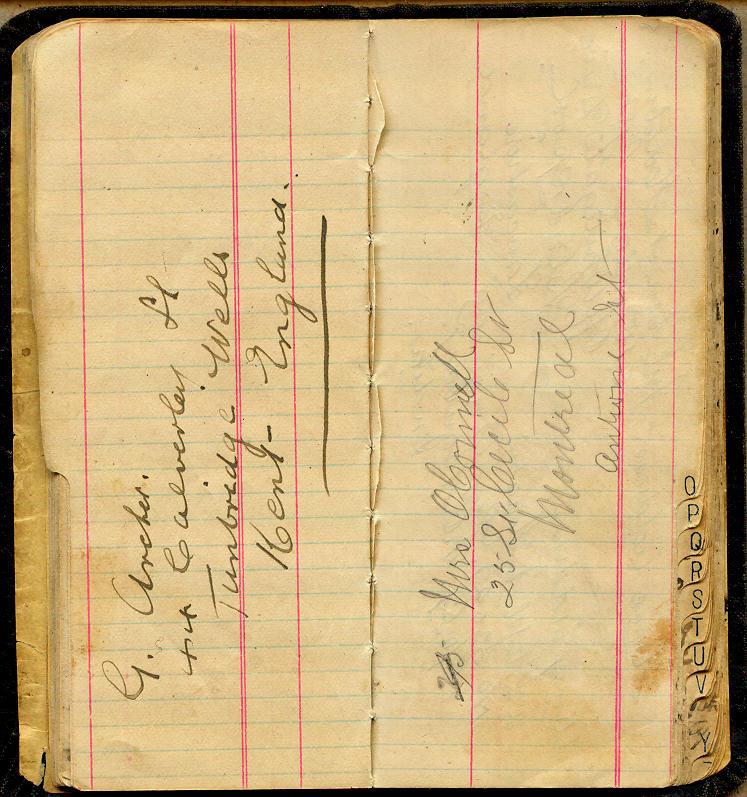 G. Archer.
44 Calverley St
Tunbridge Wells
Kent - England.
Mrs OConnell
25 St Cecile St
Montreal
Antoine St
O
P
Q
R
S
T
U
V
Y